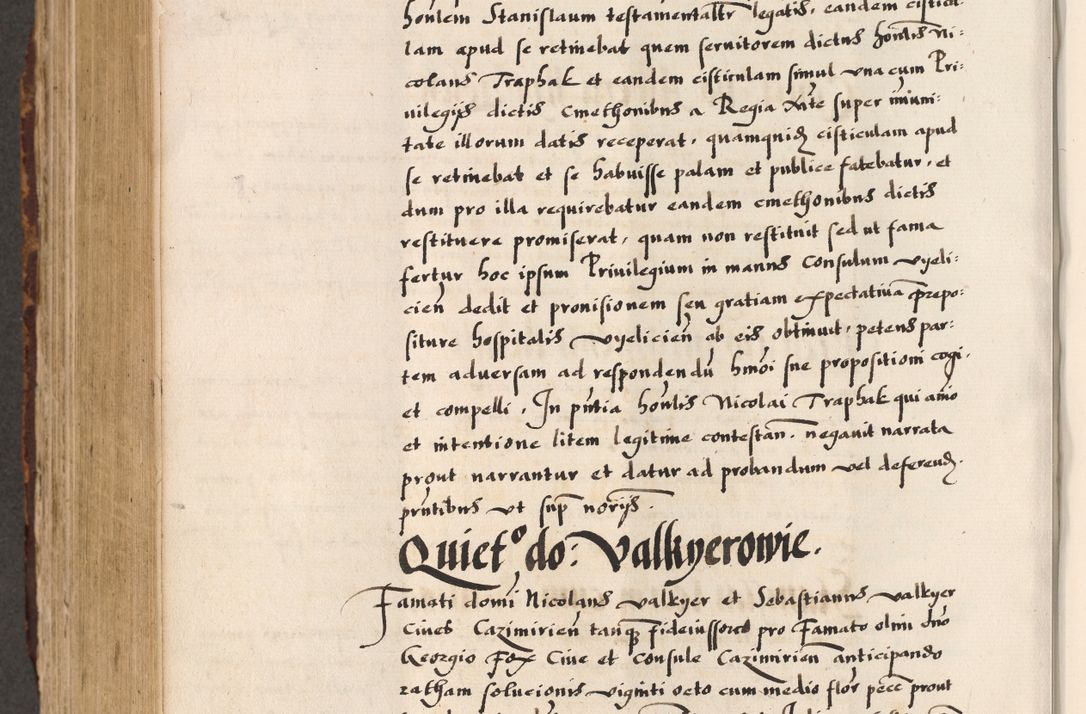 honlem Stanislaum testamentaltr legatis, eandem cisticu-
lam apud se retinebat quem seruitorem dictus honlis Ni:
colaus Traphak et eandem cisticulam simul vna cum Pri:
uilegijs dictis Cmethonibus a Regia Mte super imuni:
tate illorum datis receperat, quamquid cisticulam apud
se retinebat et se habuisse palam et publice fatebatur, et
dum pro illa requirebatur eandem cmethonibus dictis
restituere promiserat, quam non restituit sed ut fama
fertur hoc ipsum Priuilegium in manus Consulum vyeli:
cien dedit et prouisionem seu gratiam expectatiua prepo:
siture hospitalis vyelicien ab eis obtinuit, petens par:
tem aduersam ad respondendu hmoi sue propositioni cogi
et compelli. In pntia honlis Nicolai Traphak qui aio
et intentione litem legitime contestan. negauit narrata
prout narrantur et datur ad probandum vel deferend.
pntibus vt sup norijs.
Quiet° do: Valkyerowie.
Famati domi Nicolaus valkyer et Sebastianus valkyer
Ciues Cazimirien tanq fideiussores pro Famato olim dno
Georgio Fox Ciue et consule Cazimirien anticipando
ratham solucionis viginti octo cum medio flor pecc prout